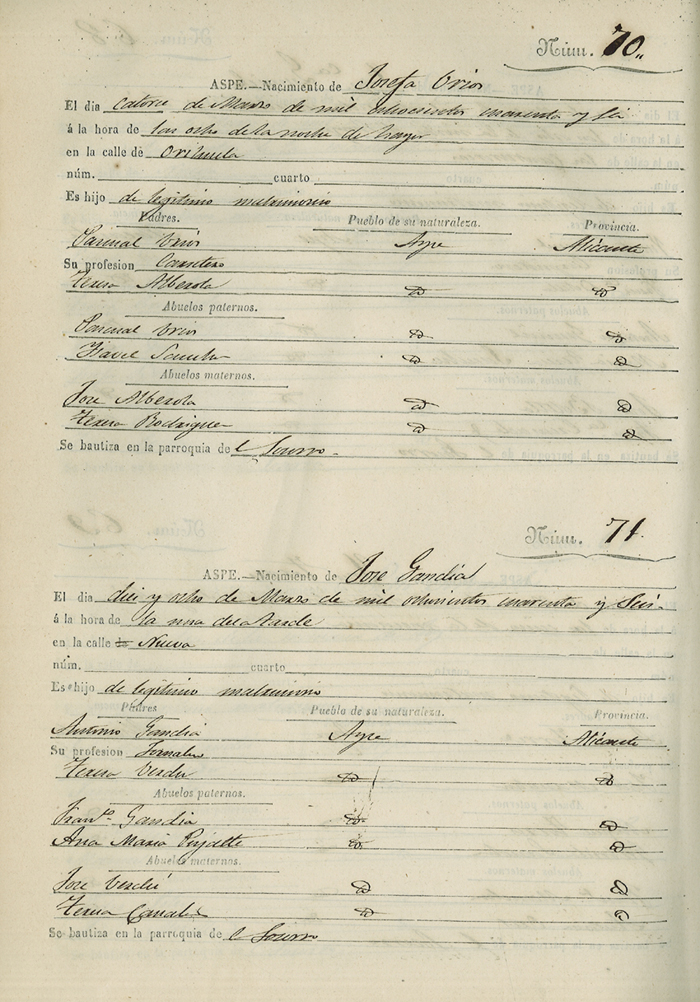 Núm. 70.,
ASPE.—Nacimiento de Josefa Urios
El dia catorce de Marzo de mil ochocientos cuarenta y seis
á la hora de las ocho de la noche de
en la calle de Orihuela
núm. cuarto
Es hijo de legitimo matrimonio
Padres. Pueblo de su naturaleza. Provincia.
Pascual Urios Aspe Alicante
Su profesion Carretero
Teresa Alberola id id
Abuelos paternos.
Pascual Urios id id
Isavel id id
Abuelos maternos.
Jose Alberola id id
Teresa Rodriguez id id
Se bautiza en la parroquia de l Socorro.
Núm. 71.
ASPE.—Nacimiento de Jose Gandia
El dia diez y ocho de Marzo de mil ochocientos cuarenta y Seis.
á la hora de la una de la tarde
en la calle de Nueva
núm. cuarto
Es hijo de legitimo matrimonio
Padres Pueblo de su naturaleza. Provincia.
Antonio Gandia Aspe Alicante
Su profesion Jornalero
Teresa Verdu id id
Abuelos paternos.
Franco. Gandia id id
Ana Maria id id
Abuelos maternos.
Jose Verdú id id
Teresa id id
Se bautiza en la parroquia de l Socorro